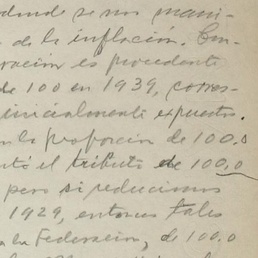 donde se nos mani-
de la inflación. Com-
ración es procedente
de 100 en 1939, corres-
inicialmente expuestos.
la proporción de 100.0
tó el tributo de 100.0
pero si reducimos
1929, entonces tales
la Federación, de 100.0